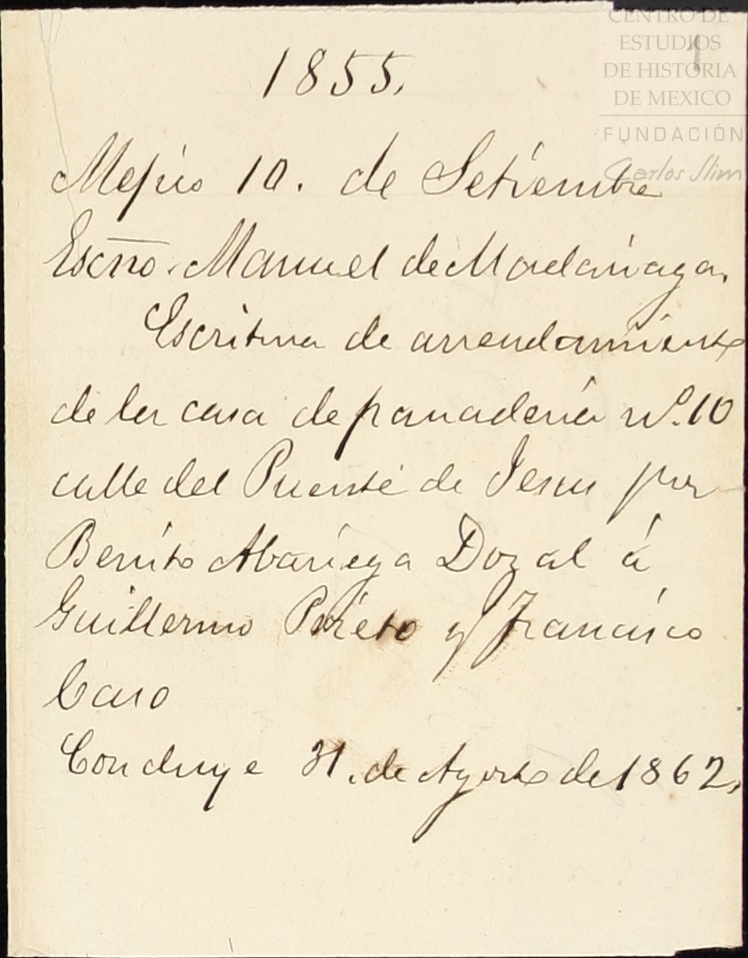 CENTRO DE
ESTUDIOS
DE HISTORIA
DE MEXICO
FUNDACIÓN
Carlos Slim
1
1855.
Mejico 10. de Setiembre
Escno. Manuel de Madariaga.
Escritura de arrendamiento
de la casa de panaderia nº. 10
calle del Puente de Jesus por
Benito Abariega Dozal á
Guillermo Prieto y Francisco
Caso
Concluye 31. de Agosto de 1862.